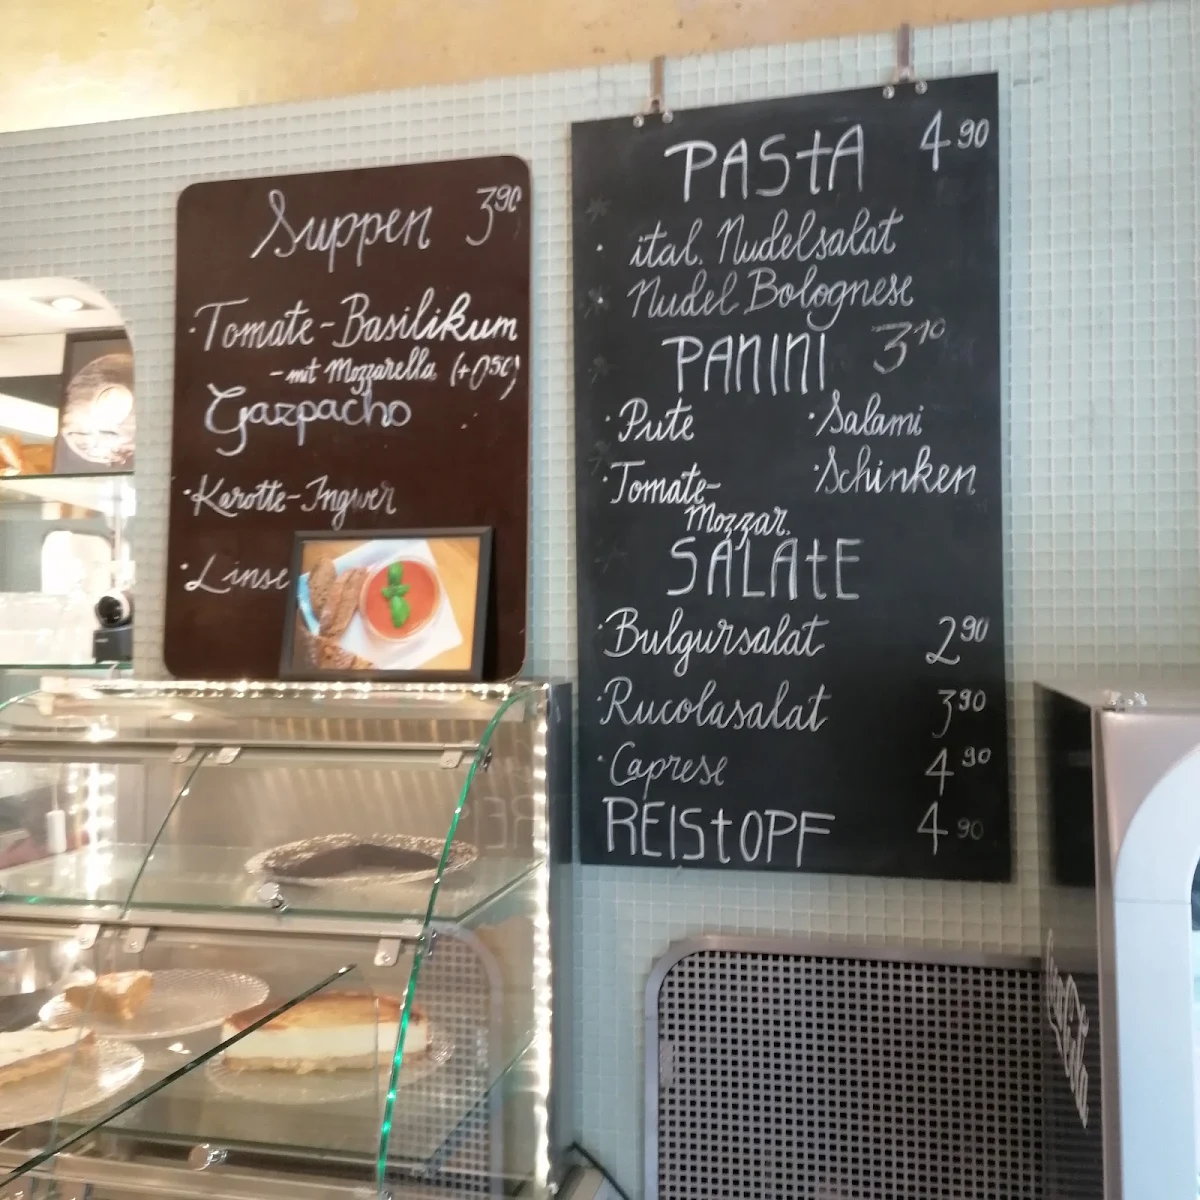 Suppen 3,90
· Tomate-Basilikum
- mit Mozzarella (+0,50)
Gazpacho
· Karotte-Ingwer
· Linse
PASTA 4,90
· ital. Nudelsalat
· Nudel Bolognese
PANINI 3,10
· Pute
· Salami
· Tomate-
Mozzar.
· Schinken
SALATE
· Bulgursalat 2,90
· Rucolasalat 3,90
· Caprese 4,90
REISTOPF 4,90